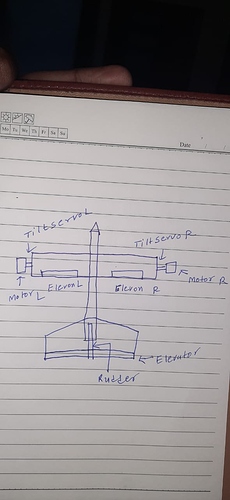 Mo Tu We Th Fr Sa Su
Date
Tiltservo L
Tiltservo R
Motor L
Elevon L
Elevon R
Motor R
Elevator
Rudder